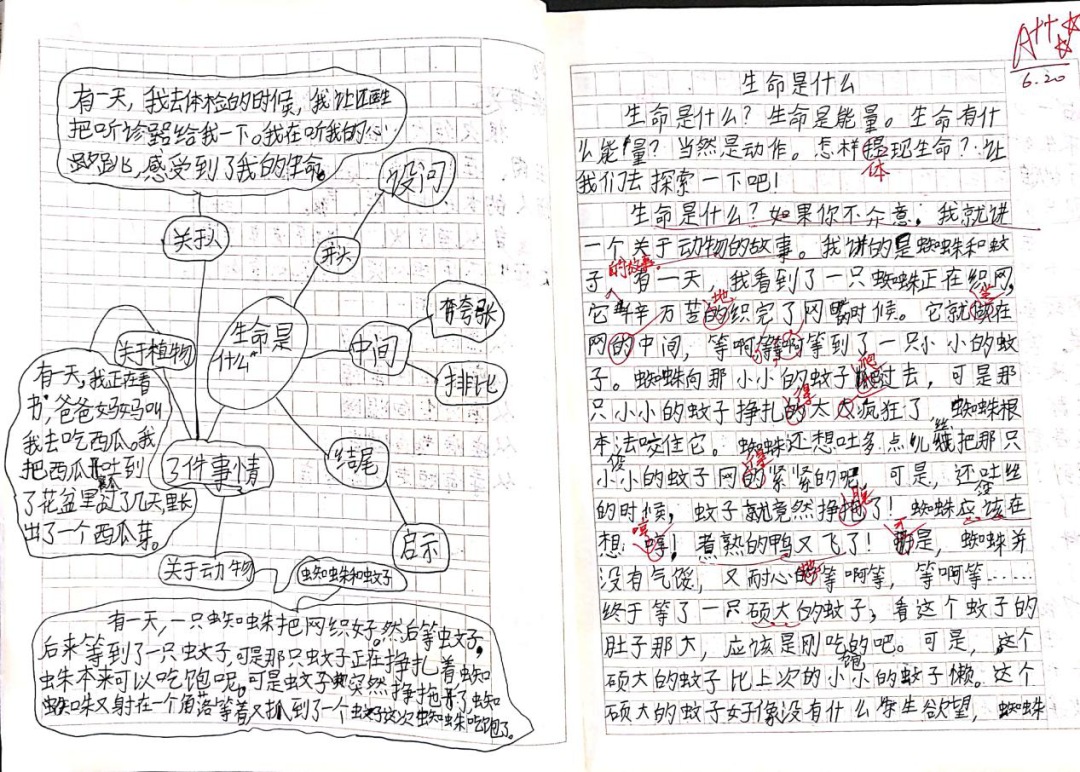 有一天，我去体检的时候，我让医生
把听诊器给我一下。我在听我的心
跳，感受到了我的生命。
设问
关于人
开头
生命是
什么
中间
夸张
排比
关于植物
有一天，我正在看
书，爸爸妈妈叫
我去吃西瓜。我
把西瓜吐到
了花盆里过了几天，里长
出了一个西瓜芽。
了件事情
结尾
启示
关于动物
蜘蛛和蚊子
有一天，一只蜘蛛把网织好。然后等蚊子，
后来等到了一只蚊子，可是那只蚊子正在挣扎着蜘
蛛本来可以吃饱呢。可是蚊子突然挣拖了，蜘
蛛又射在一个角落等着又抓到了一个蚊子这次蜘蛛吃饱了。
A++
6.20
生命是什么
生命是什么？生命是能量。生命有什
么能量？当然是动作。怎样提现生命？让
体
我们去探索一下吧！
生命是什么？如果你不介意，我就讲
一个关于动物的故事。我讲的是蜘蛛和蚊
子 的故事。有一天，我看到了一只蜘蛛正在织网，
地
它辛辛万苦的织完了网的时候。它就在
坐
网的中间，等啊等啊等到了一只小小的蚊
子。蜘蛛向那小小的蚊子过去，可是那
爬
得
只小小的蚊子挣扎的太疯狂了，蜘蛛根
本没法咬住它。蜘蛛还想吐多点儿丝把那只
得
小小的蚊子网的紧紧的呢。可是，还没吐丝
脱
的时候，蚊子就竟然挣拖了！蜘蛛应该在
想：哼！煮熟的鸭又飞了！可是，蜘蛛并
没有气馁，又耐心的等啊等，等啊等……
地
终于等了一只硕大的蚊子，看这个蚊子的
肚子那大，应该是刚吃饱的吧。可是，这个
硕大的蚊子比上次的小小的蚊子懒。这个
硕大的蚊子好像没有什么求生欲望，蜘蛛